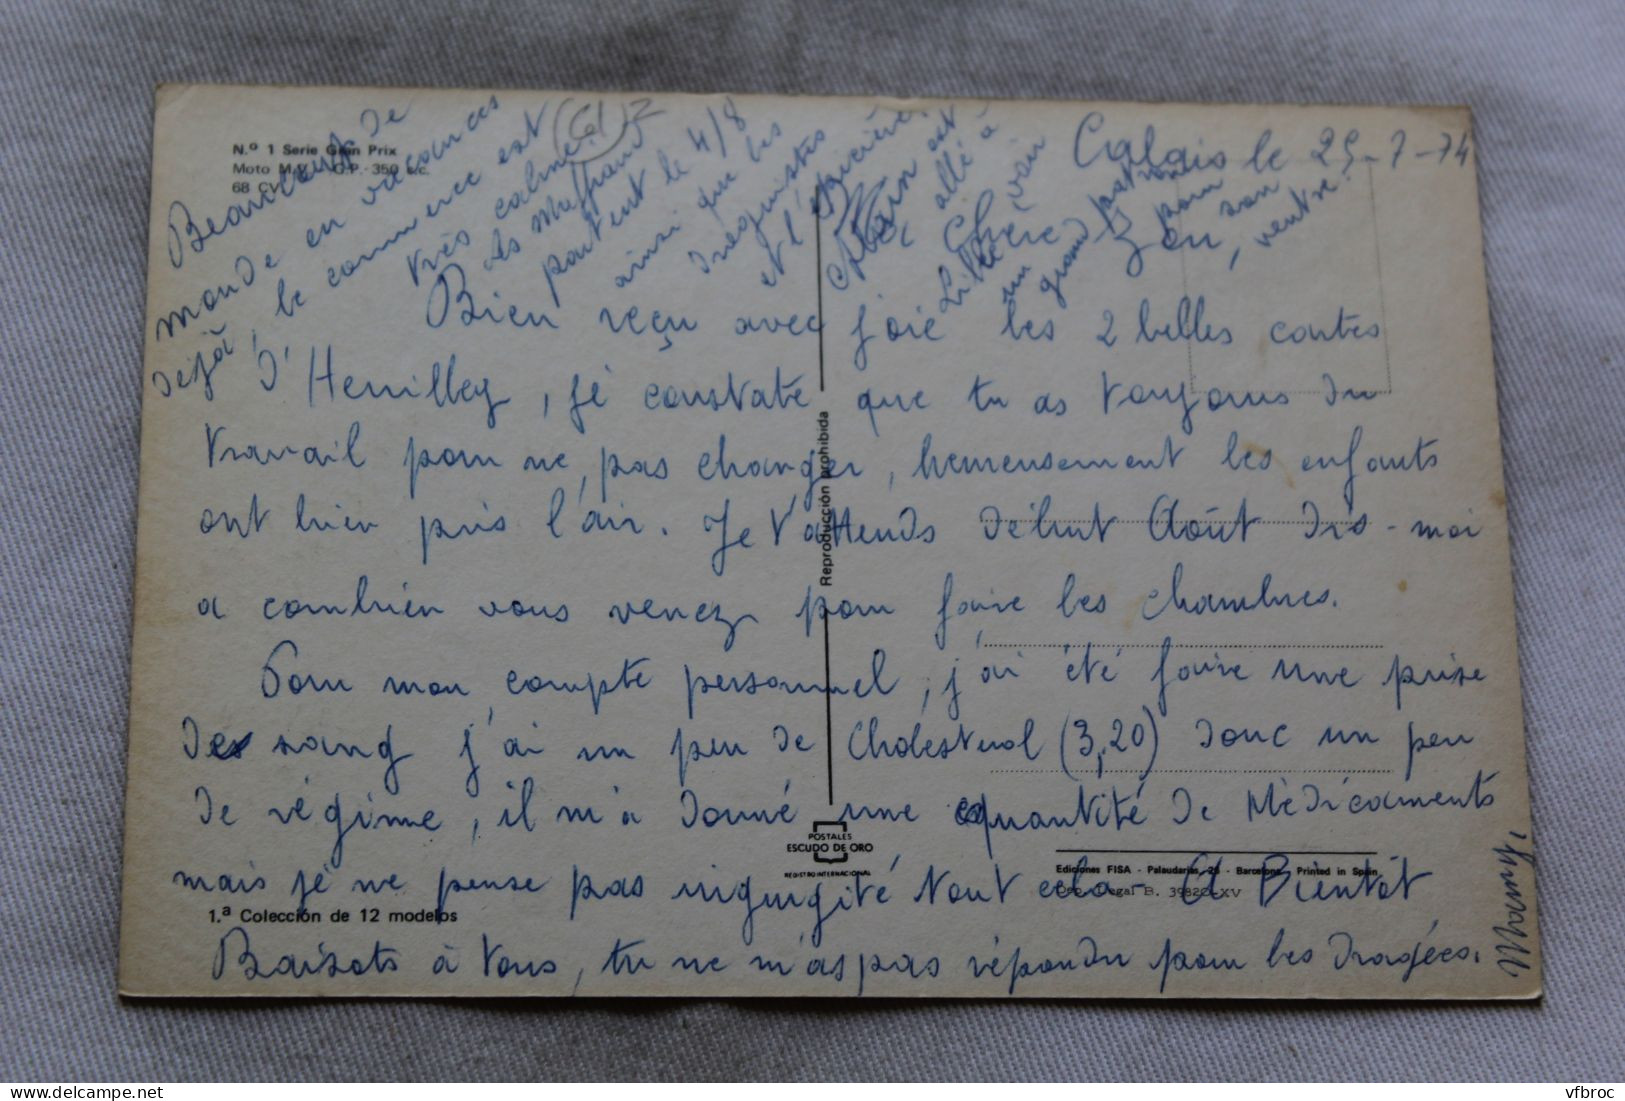 N.º 1 Serie Gran Prix
Moto M.V. - G.P. - 350 c.c.
68 CV.
Calais le 25-7-74
Chère Zou,
Bien reçu avec joie les 2 belles cartes
d'Henrilley, je constate que tu as toujours du
travail pour ne pas changer, heureusement les enfants
ont bien pris l'air. Je t'attends début Août dis-moi
a combien vous venez pour faire les chambres.
Pour mon compte personnel, j'ai été faire une prise
de sang j'ai un peu de Cholesterol (3,20) donc un peu
de régime, il m'a donné une quantité de Médicaments
mais je ne pense pas ingurgité tout cela - A Bientôt
Baisers à Tous, tu ne m'as pas répondu pour les dragées.
Mamy,
Beaucoup de
monde en vacances
déjà, le commerce est
très calme.
Les
partent le 4/8
ainsi que les
droguistes
et l'épicière.
Alain est
allé à
voir
un grand patron
pour
son
ventre.
Reproducción prohibida
POSTALES
ESCUDO DE ORO
REGISTRO INTERNACIONAL
Ediciones FISA - Palaudarias, 26 - Barcelona - Printed in Spain
Dep. Legal B. 39820-XV
1.ª Colección de 12 modelos
vfbroc